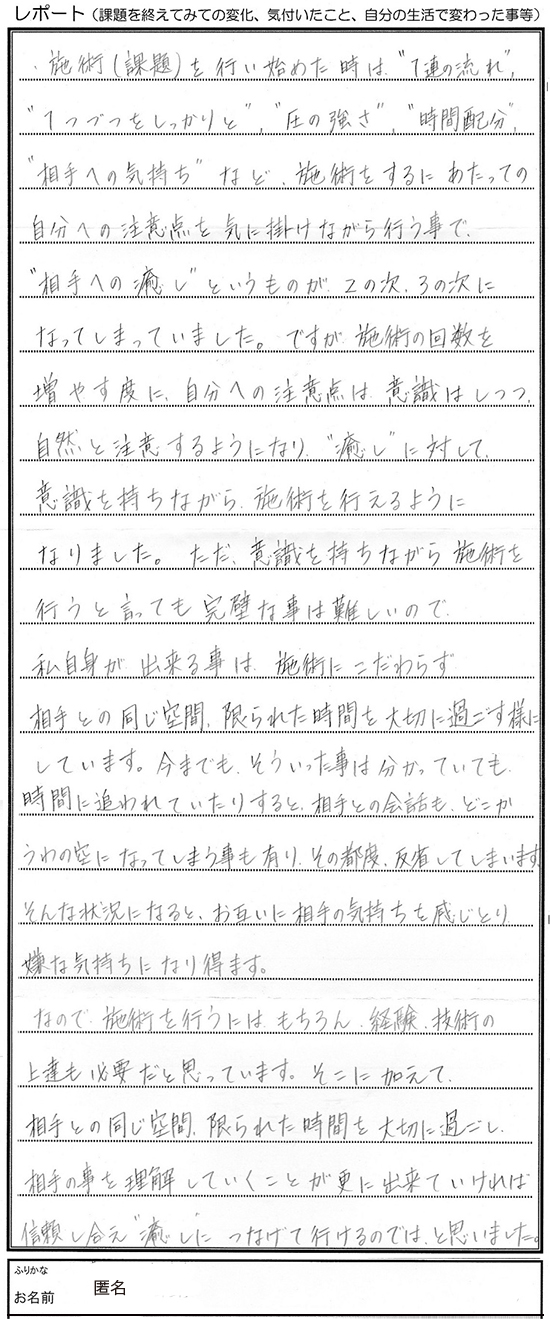 レポート（課題を終えてみての変化、気付いたこと、自分の生活で変わった事等）
・施術(課題)を行い始めた時は、"1連の流れ"，
"1つづつをしっかりと"，"圧の強さ"，"時間配分"，
"相手への気持ち"など、施術をするにあたっての
自分への注意点を気に掛けながら行う事で、
"相手への癒し"というものが、2の次、3の次に
なってしまっていました。ですが、施術の回数を
増やす度に、自分への注意点は、意識はしつつ、
自然と注意するようになり、"癒し"に対して、
意識を持ちながら、施術を行えるように
なりました。ただ、意識を持ちながら施術を
行うと言っても完璧な事は難しいので、
私自身が、出来る事は、施術にこだわらず
相手との同じ空間、限られた時間を大切に過ごす様に
しています。今までも、そういった事は分かっていても、
時間に追われていたりすると、相手との会話も、どこか
うわの空になってしまう事も有り、その都度、反省してしまいます。
そんな状況になると、お互いに相手の気持ちを感じとり
嫌な気持ちになり得ます。
なので、施術を行うには、もちろん、経験、技術の
上達も必要だと思っています。そこに加えて、
相手との同じ空間、限られた時間を大切に過ごし、
相手の事を理解していくことが更に出来ていければ
信頼し合え"癒し"につなげて行けるのでは、と思いました。
ふりかな
お名前 匿名